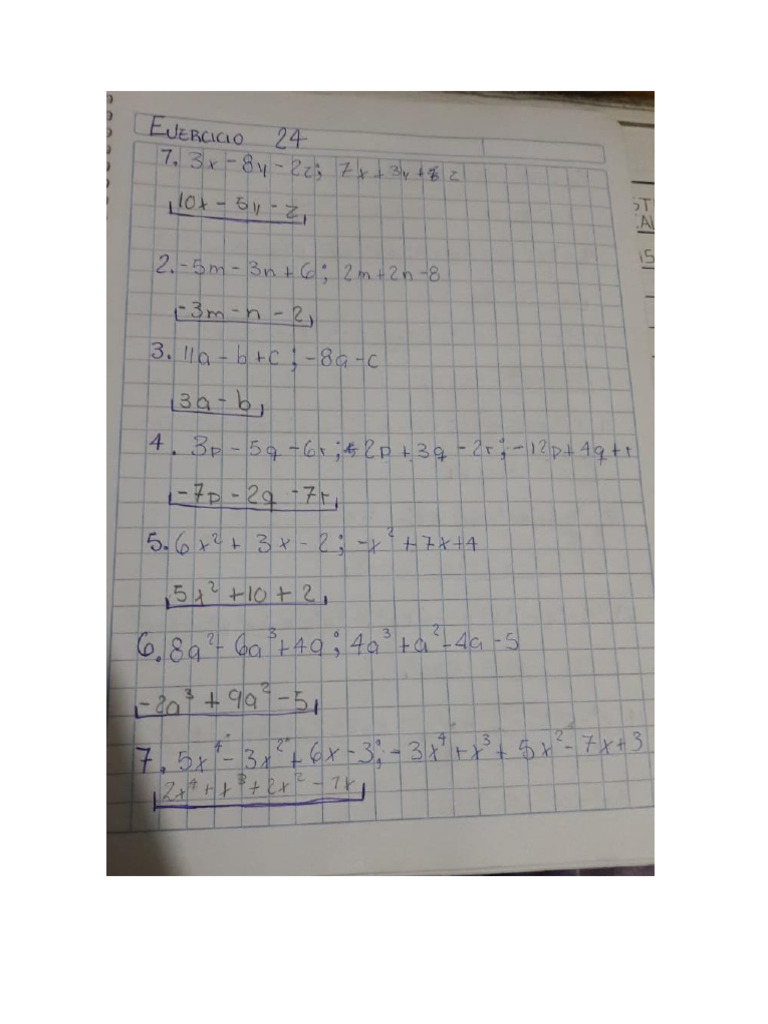 EJERCICIO 24
7. 3x - 8y - 2z; 7x + 3y + z
10x - 5y - z
2. -5m - 3n + 6; 2m + 2n - 8
-3m - n - 2
3. 11a - b + c; -8a - c
3a - b
4. 3p - 5q - 6r; 2p + 3q - 2r; -12p + 4q + r
-7p - 2q - 7r
5. 6x² + 3x - 2; -x² + 7x + 4
5x² + 10 + 2
6. 8a² - 6a³ + 4a; 4a³ + a² - 4a - 5
-2a³ + 9a² - 5
7. 5x⁴ - 3x² + 6x - 3; -3x⁴ + x³ + 5x² - 7x + 3
2x⁴ + x³ + 2x² - 1x